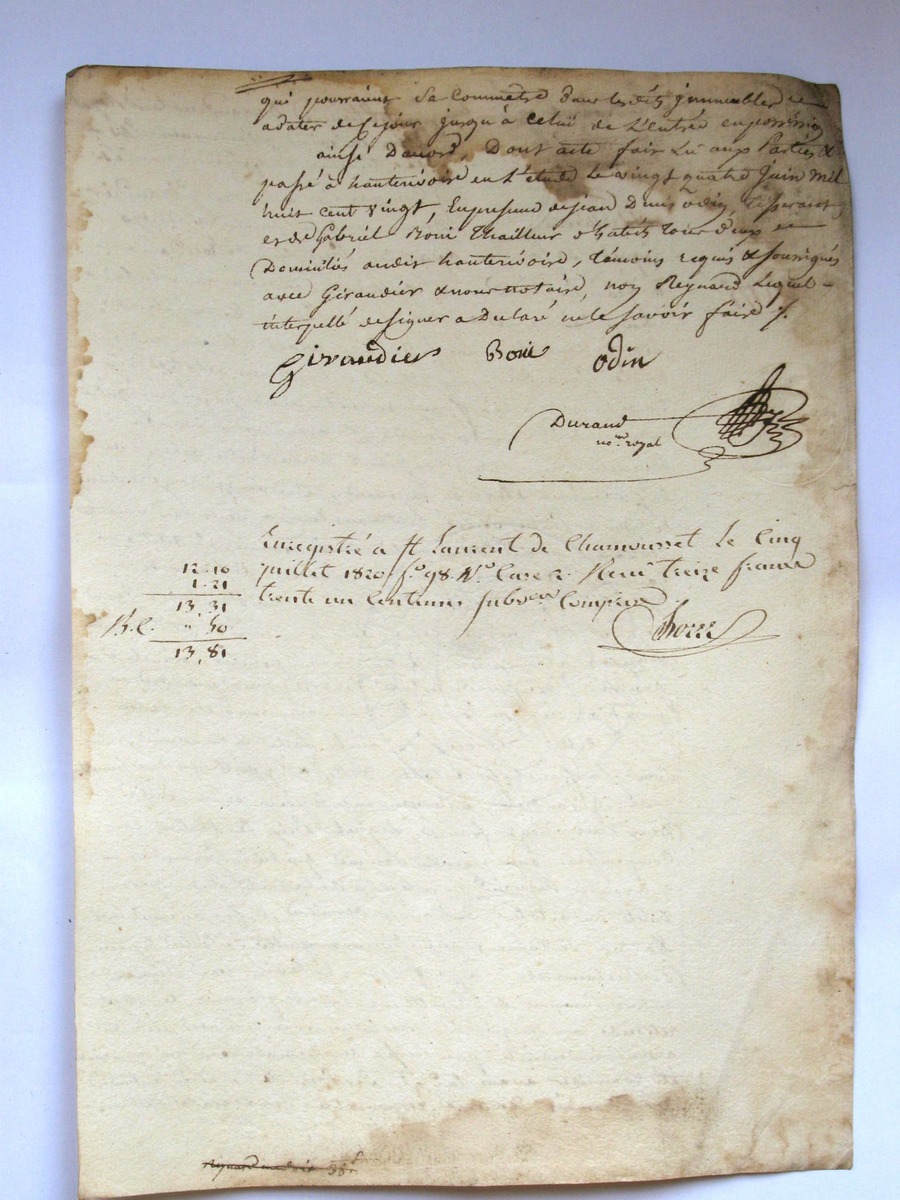 qui pourraint se commettre dans lesdits immeubles
adater de ce jour jusqu'à celui de L'entrée en possession
ainsi Daccord, Dont acte fait Lu aux Parties &
passé à hauterivoire en L'étude Le vingt quatre Juin mil
huit cent vingt, En presence de jean Denis odin, tisserant,
et de Gabriel Boni thailleur d'habits tous deux
Domiciliés audit hauterivoire, témoins requis & soussignés
avec Giraudier & nous notaire, non Reynard Lequel
interpellé de signer a Déclaré ne le savoir faire ./.
Giraudier Boni odin
Durand
no.re royal
Enregistré a St Laurent de Chamousset Le Cinq
juillet 1820 fo. 98. Vo. Case 2. Recu treize francs
trente un Centimes subvon Comprise
12.10
1.21
13,31
" 50
13,81